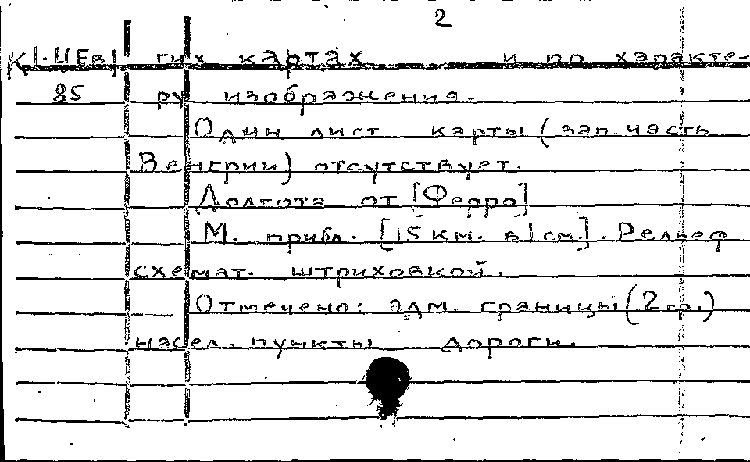 2
К1-ЦЕв гих картах и по характе-
85 ру изображения.
Один лист карты (зап. часть
Венгрии) отсутствует.
Долгота от [Ферро]
М. прибл. [15 км. в 1 см]. Рельеф
схемат. штриховкой.
Отмечено: адм. границы (2 гр.)
насел. пункты дороги.